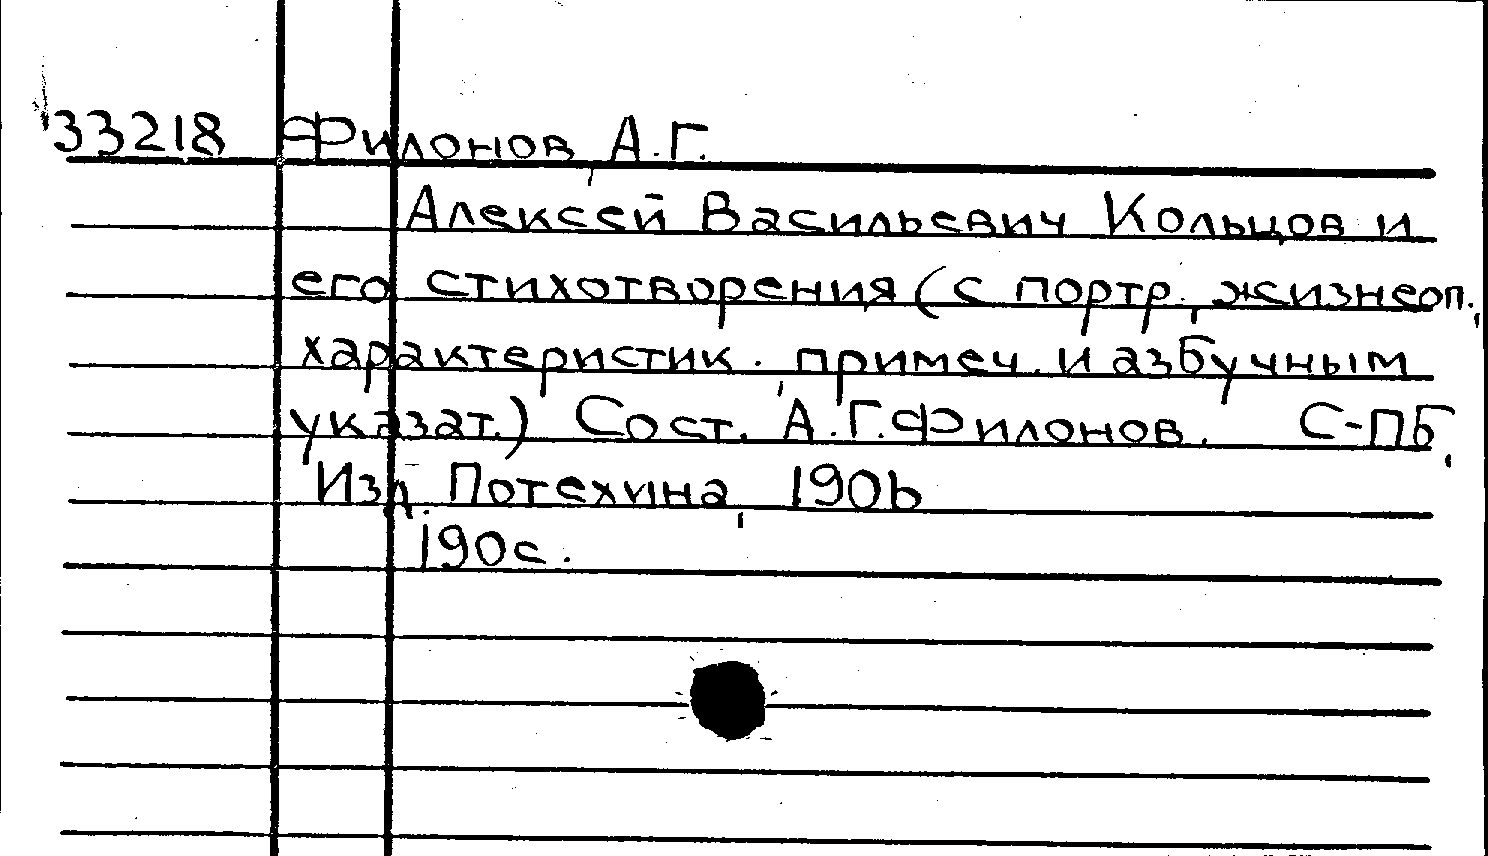 33218 Филонов, А.Г.
Алексей Васильевич Кольцов и
его стихотворения (с портр., жизнеоп.,
характеристик. примеч. и азбучным
указат.) Сост. А.Г.Филонов. С-ПБ,
Изд. Потехина, 1906
190с.